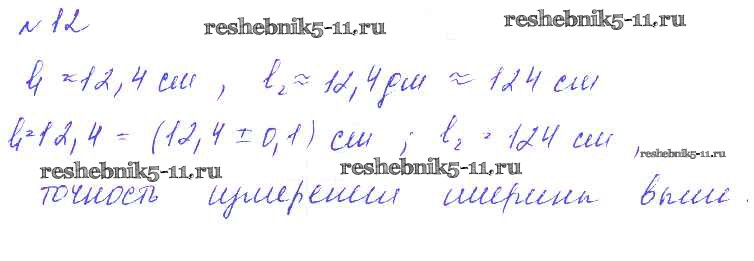 №12 reshebnik5-11.ru reshebnik5-11.ru
l₁ ≈ 12,4 см , l₂ ≈ 12,4 дм ≈ 124 см
l₁ = 12,4 = (12,4 ± 0,1) см ; l₂ = 124 см , reshebnik5-11.ru
reshebnik5-11.ru reshebnik5-11.ru
точность измерения ширины выше.